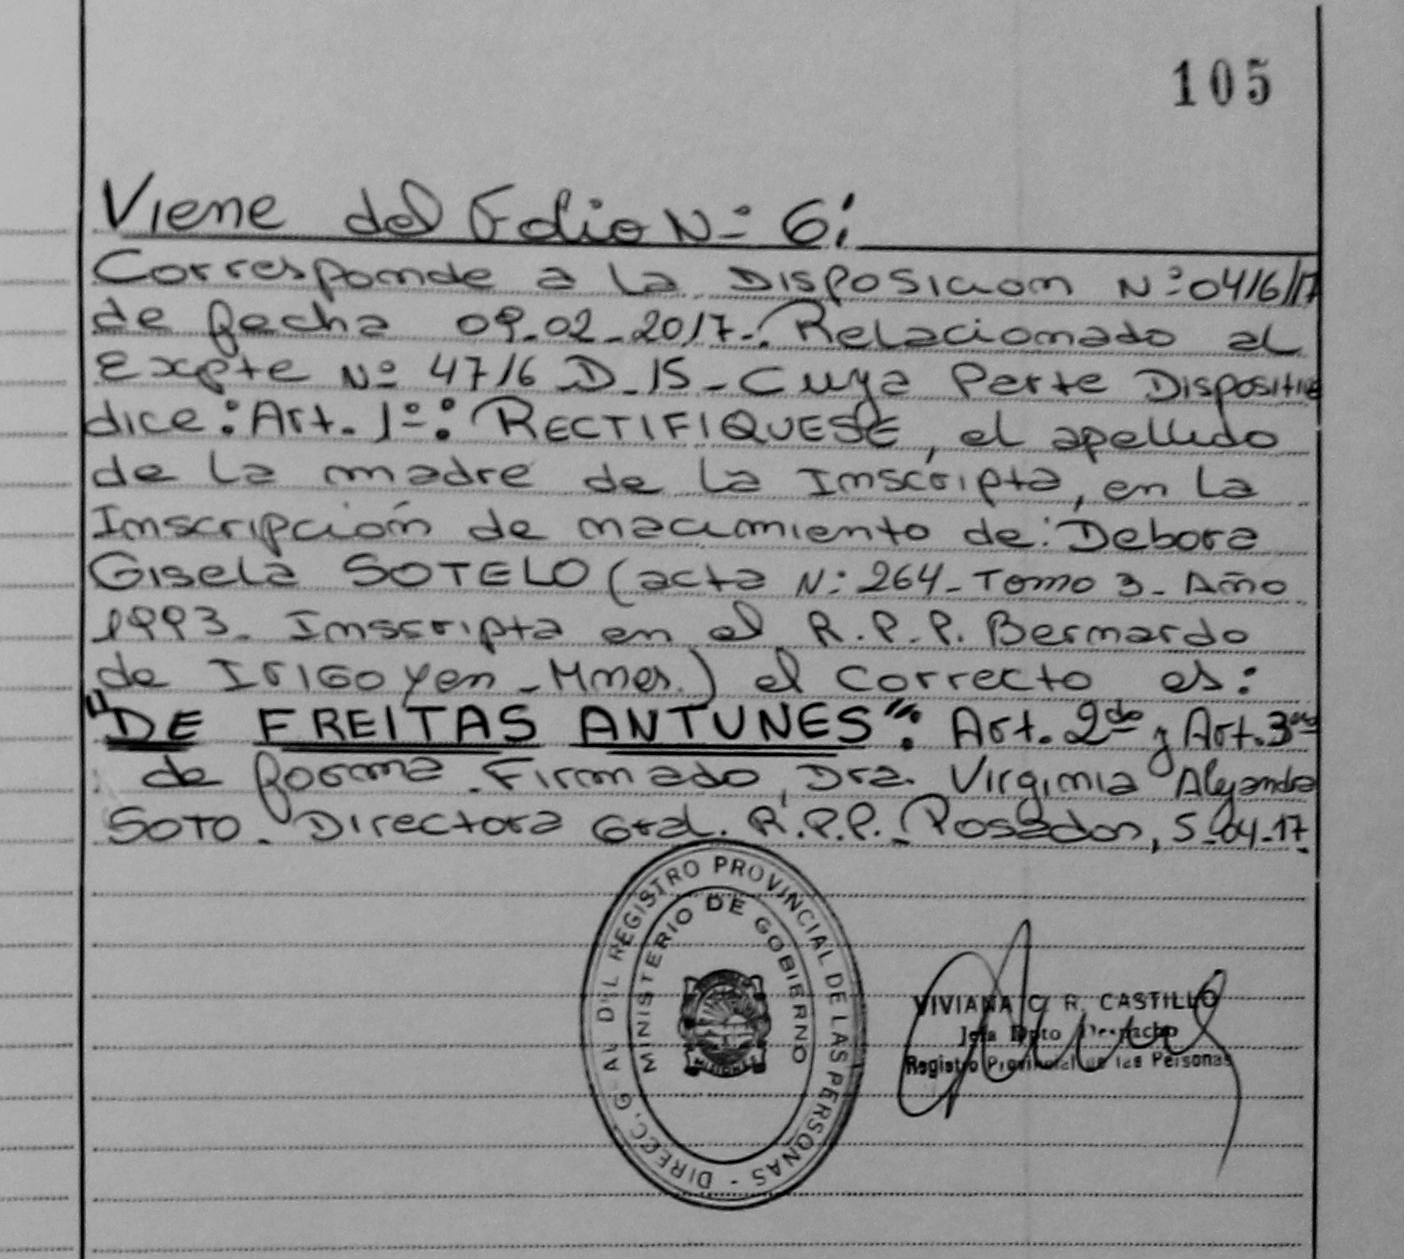 105
Viene del Folio Nº 6:
Corresponde a la Disposicion Nº 0416/17
de fecha 09-02-2017. Relacionado al
Expte Nº 4716 D-15- Cuya Parte Dispositiva
dice: Art. 1º: RECTIFIQUESE, el apellido
de la madre de la Inscripta, en la
Inscripción de nacimiento de: Debora
Gisela SOTELO (acta Nº 264- Tomo 3- Año
1993- Inscripta en el R.P.P. Bernardo
de Irigoyen - Mnes.) el correcto es:
"DE FREITAS ANTUNES". Art. 2do y Art. 3ro
de forma. Firmado, Dra. Virginia Alejandra
SOTO. Directora Gral. R.P.P. Posadas, 5-04-17.
DIRECC. GRAL DEL REGISTRO PROVINCIAL DE LAS PERSONAS -
MINISTERIO DE GOBIERNO
MISIONES
VIVIANA C. R. CASTILLO
Jefa Dpto Despacho
Registro Provincial de las Personas